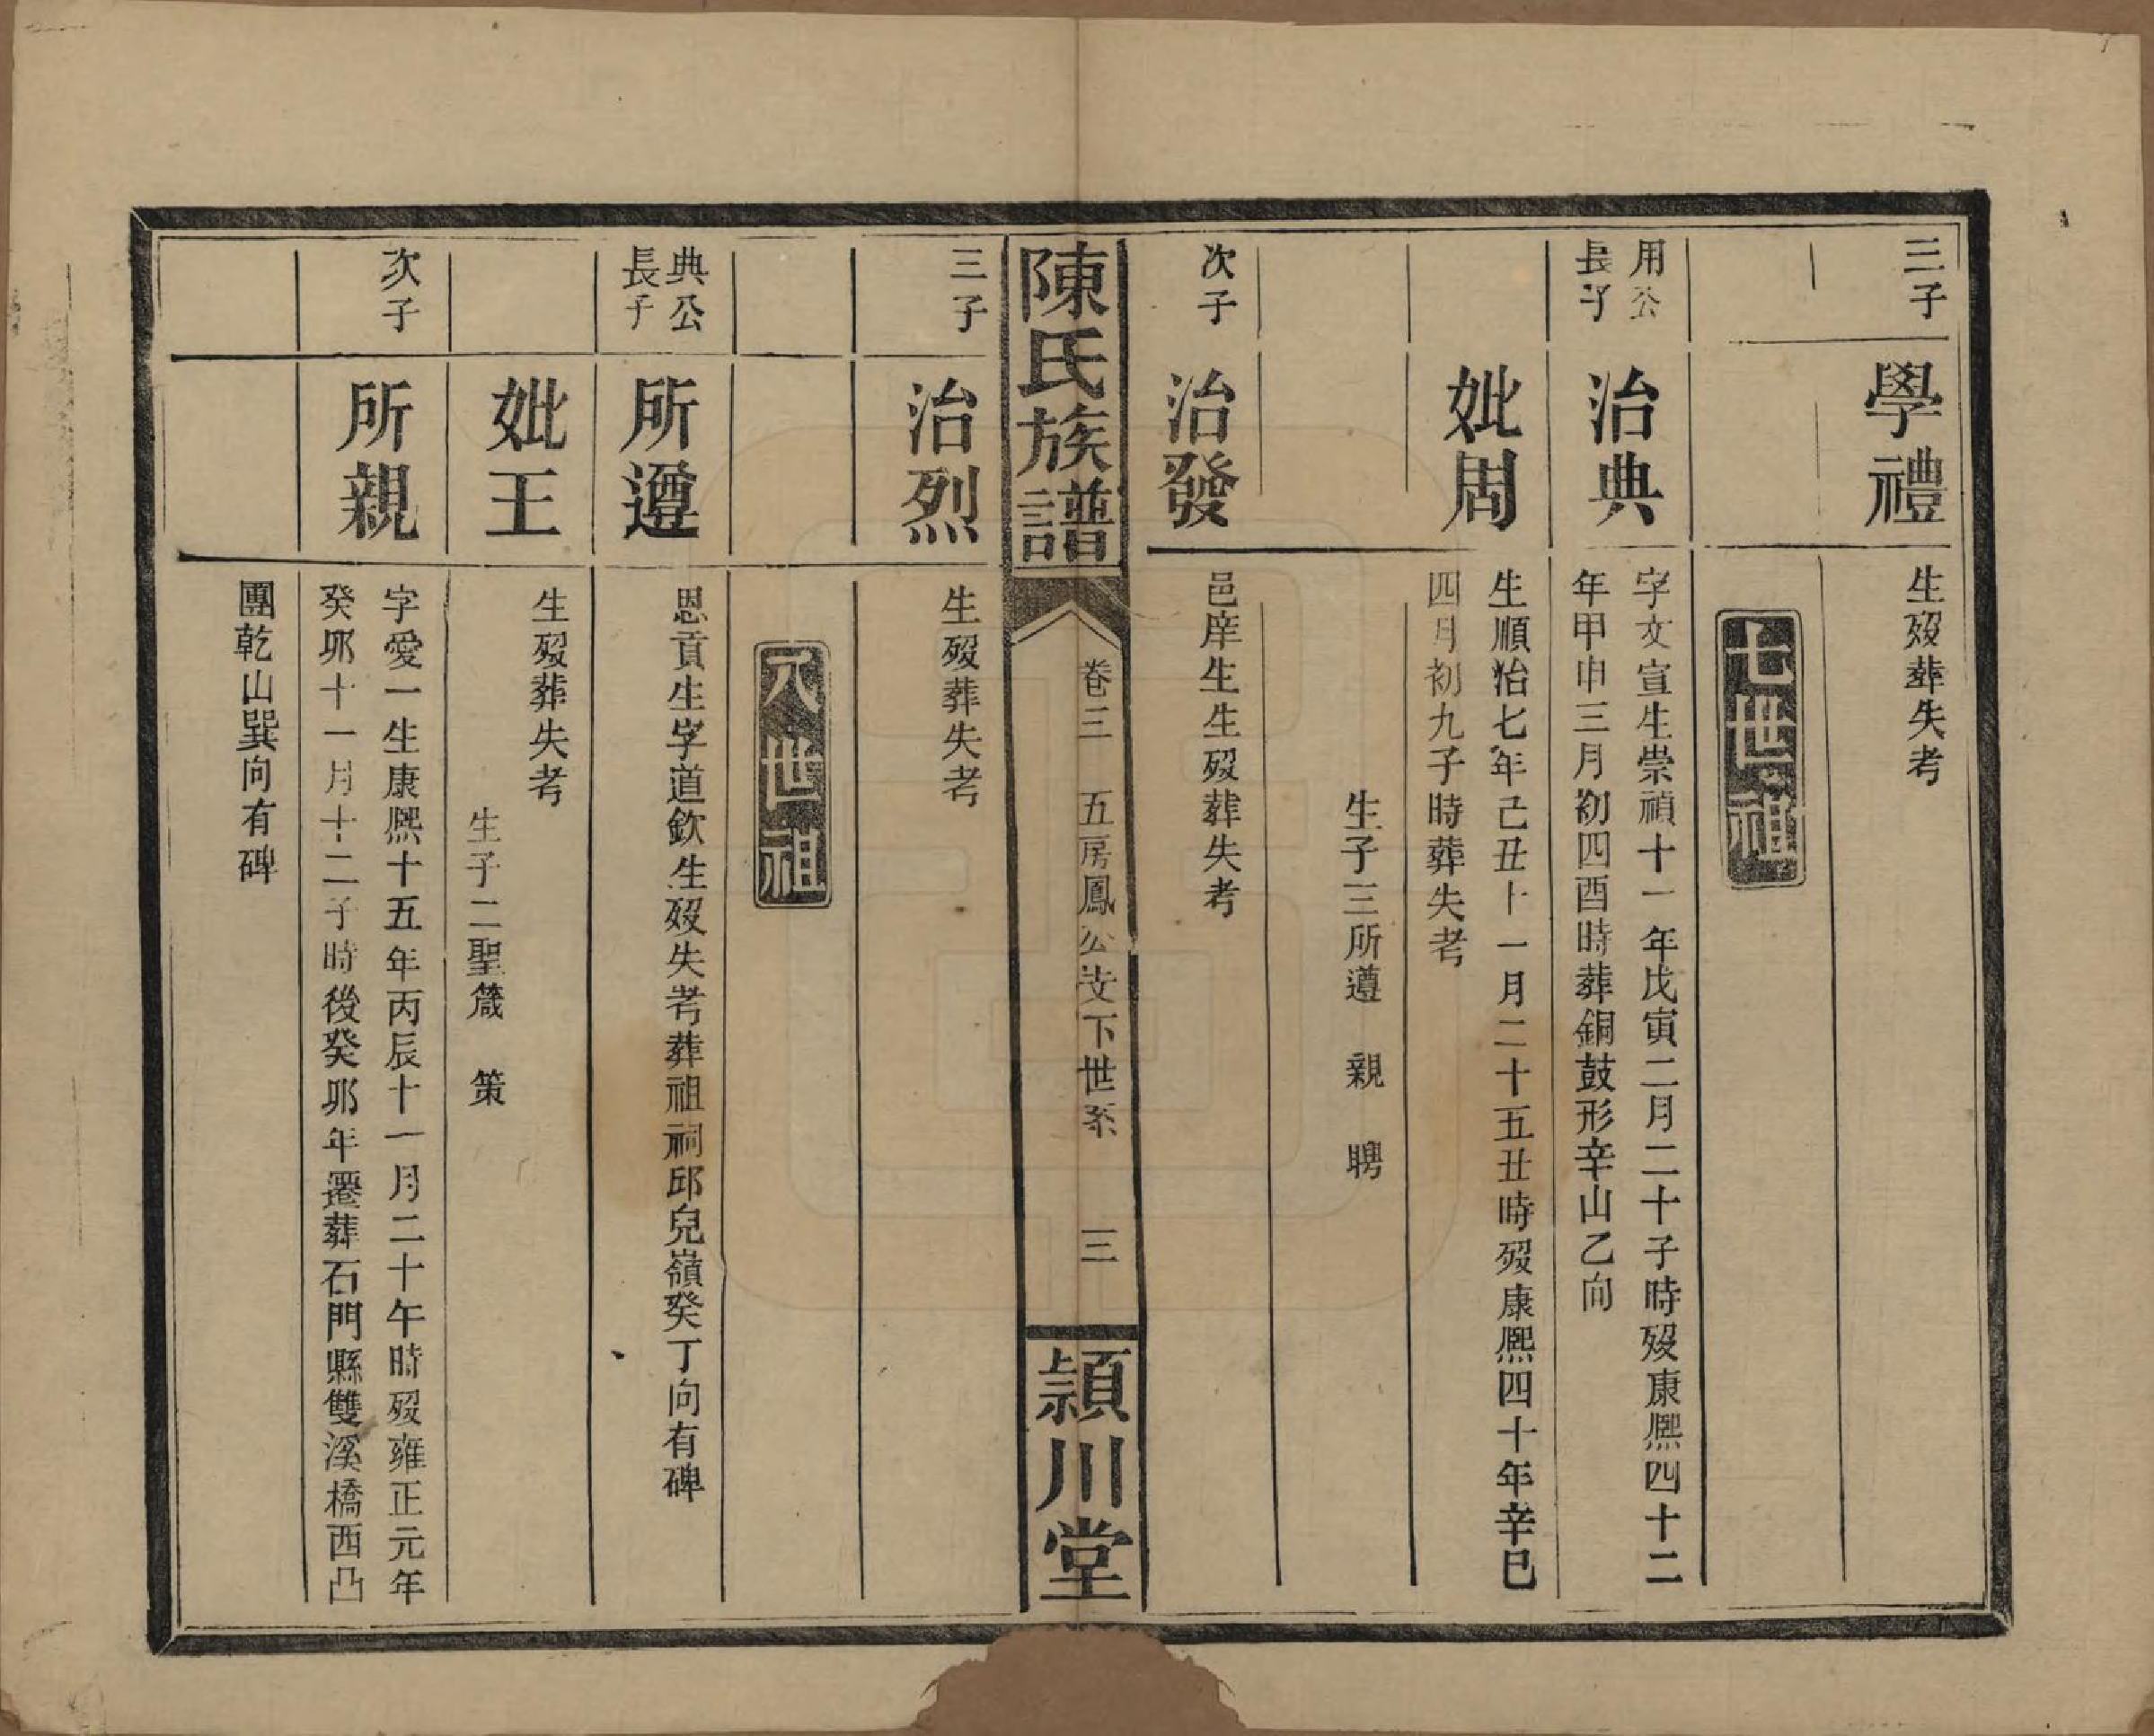 三子
學禮
生歿葬失考
七世祖
用公
長子
治典
字文宣生崇禎十一年戊寅二月二十子時歿康熙四十二
年甲申三月初四酉時葬銅鼓形辛山乙向
妣周
生順治七年己丑十一月二十五丑時歿康熙四十年辛巳
四月初九子時葬失考
生子三所遵　親　聘
次子
治發
邑庠生生歿葬失考
陳氏族譜
卷三　五房鳳公支下世系　三
頴川堂
三子
治烈
生歿葬失考
八世祖
典公
長子
所遵
恩貢生字道欽生歿失考葬祖祠邱兒嶺癸丁向有碑
妣王
生歿葬失考
生子二聖箴　策
次子
所親
字愛一生康熙十五年丙辰十一月二十午時歿雍正元年
癸卯十一月十二子時後癸卯年遷葬石門縣雙溪橋西凸
團乾山巽向有碑